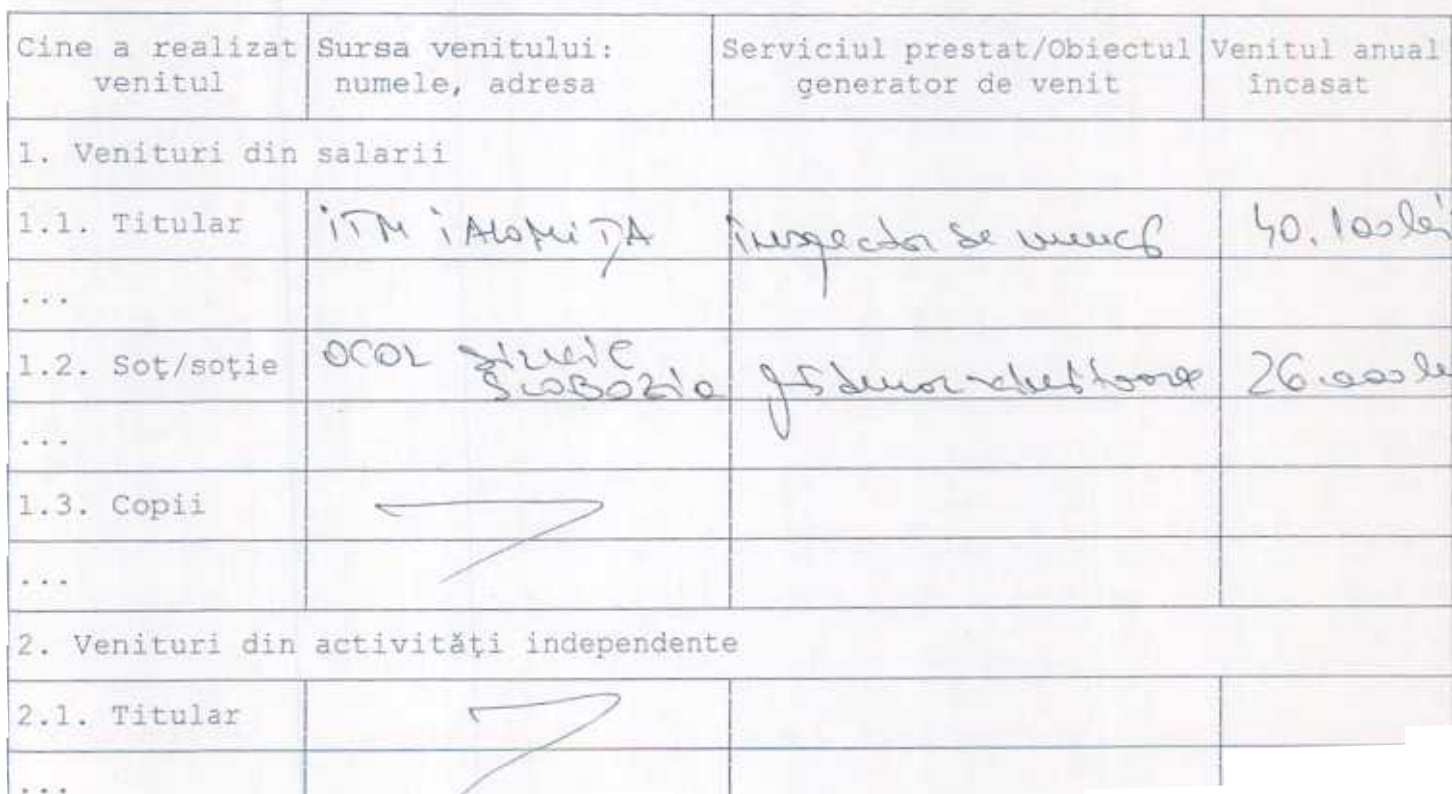 Cine a realizat venitul
Sursa venitului: numele, adresa
Serviciul prestat/Obiectul generator de venit
Venitul anual încasat
1. Venituri din salarii
1.1. Titular ITM IALOMIȚA Inspector de muncă 40.100 lei
...
1.2. Soţ/soţie OCOL SILVIC SLOBOZIA 26.000 lei
...
1.3. Copii
...
2. Venituri din activităţi independente
2.1. Titular
...